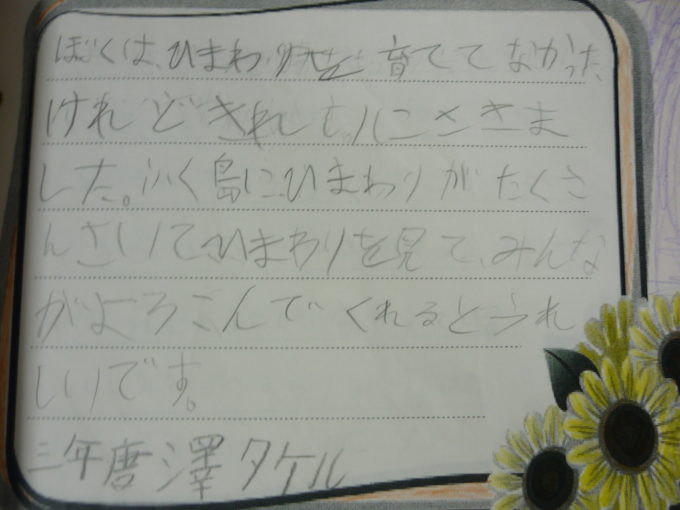 ぼくは、ひまわりを育ててなかった
けれどきれ さきま
した。ふく島にひまわりがたくさ
んさいてひまわりを見て、みんな
がよろこんでくれるとうれ
しいです。
三年唐澤タケル